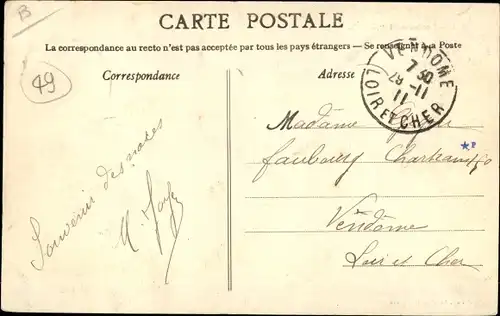 B
CARTE POSTALE
La correspondance au recto n'est pas acceptée par tous les pays étrangers — Se renseigner à la Poste
49
Correspondance
Adresse
VENDOME
7 30
28 -11
11
LOIR ET CHER
Souvenir des noces
Madame
faubourg Chartrain
Vendôme
Loir et Cher